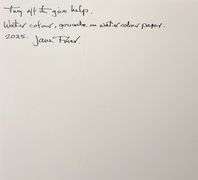 Tug off to give help.
Water colour, gouache on water colour paper.
2025.
Jane